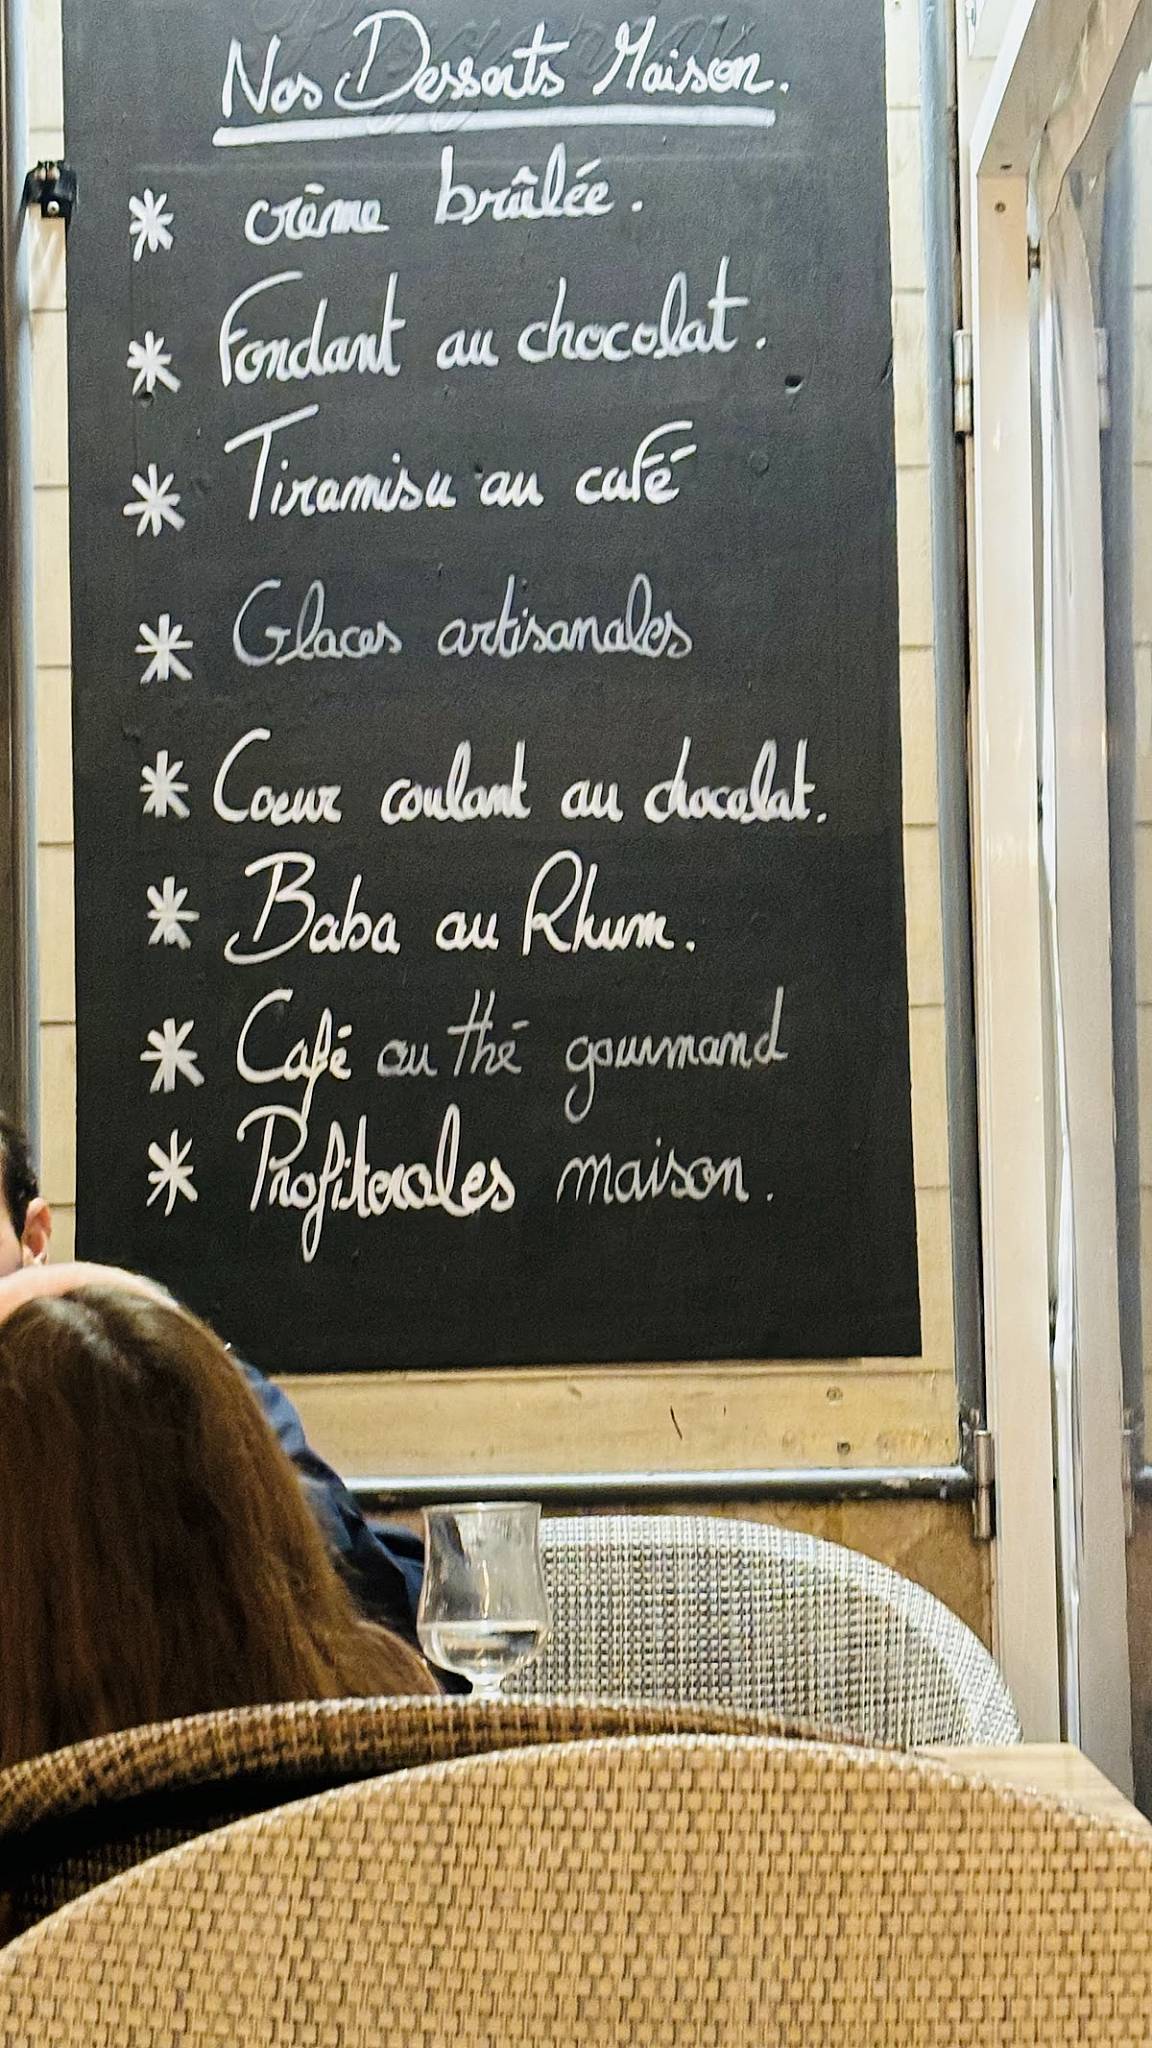 Nos Desserts Maison.
* crème brûlée.
* Fondant au chocolat.
* Tiramisu au café
* Glaces artisanales
* Coeur coulant au chocolat.
* Baba au Rhum.
* Café ou thé gourmand
* Profiteroles maison.